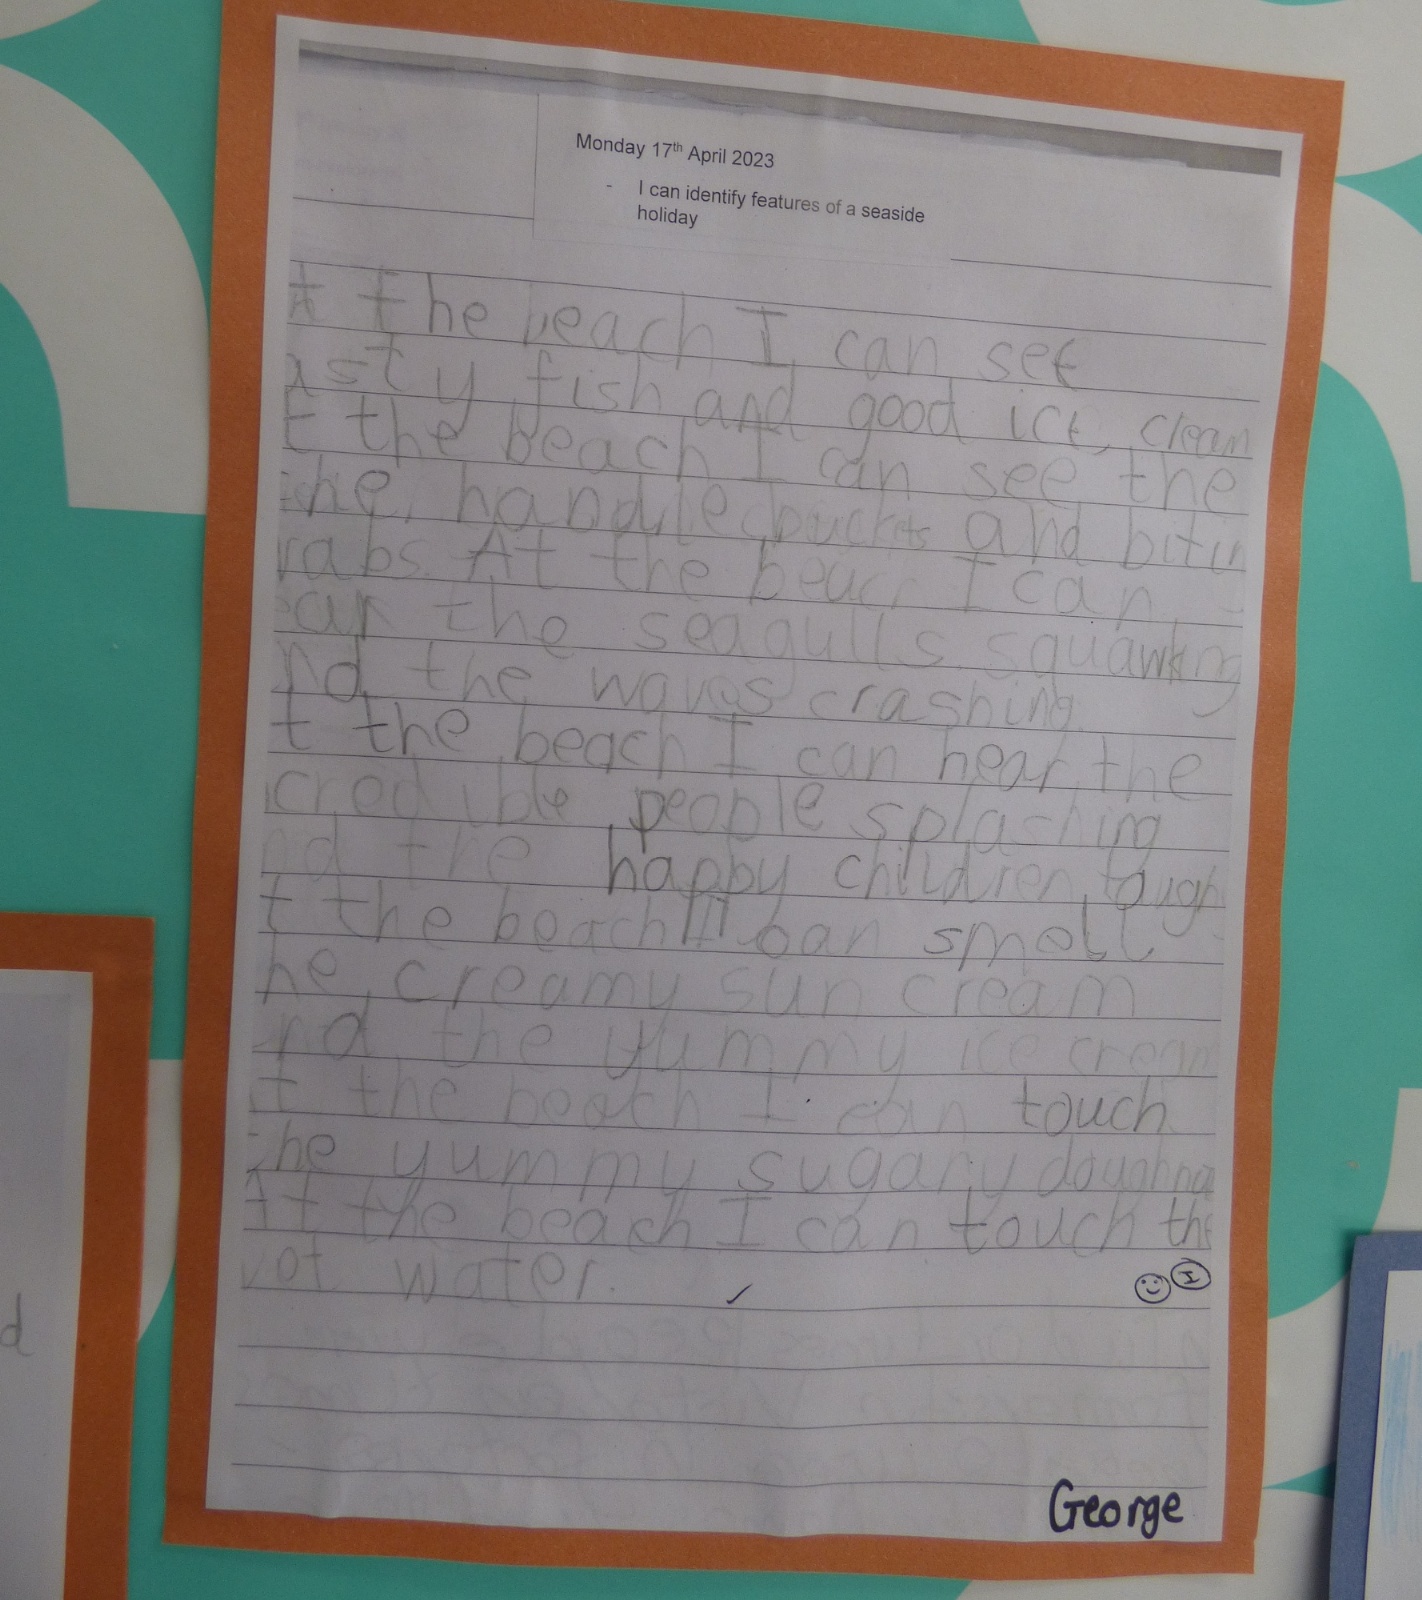 Monday 17th April 2023
- I can identify features of a seaside
holiday
t the beach I can see
asty fish and good ice cream
t the beach I can see the
the handle buckets and bitin
rabs. At the beach I can
ear the seagulls squawking
nd the waves crashing.
t the beach I can hear the
credible people splashing
nd the happy children laugh
t the beach I can smell
he creamy sun cream
nd the yummy ice cream
t the beach I can touch
the yummy sugary doughnu
At the beach I can touch the
wet water.
George
d